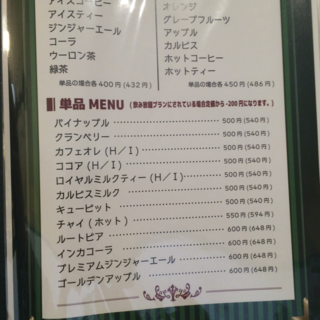 アイスコーヒー
アイスティー
ジンジャーエール
コーラ
ウーロン茶
緑茶
単品の場合各400円(432円)
オレンジ
グレープフルーツ
アップル
カルピス
ホットコーヒー
ホットティー
単品の場合各450円(486円)
単品MENU (飲み放題プランにされている場合定価から-200円になります。)
パイナップル 500円(540円)
クランベリー 500円(540円)
カフェオレ(H/I) 500円(540円)
ココア(H/I) 500円(540円)
ロイヤルミルクティー(H/I) 500円(540円)
カルピスミルク 500円(540円)
キューピット 500円(540円)
チャイ(ホット) 550円(594円)
ルートビア 600円(648円)
インカコーラ 600円(648円)
プレミアムジンジャーエール 600円(648円)
ゴールデンアップル 600円(648円)